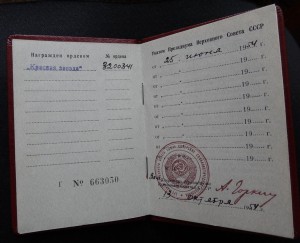 Награжден орденом
№ ордена
"Красная звезда"
Г № 663050
Указом Президиума Верховного Совета СССР
от 25 июня 1954
от 19
от 19
от 19
от 19
от 19
от 19
от 19
от 19
А. Горкин
13 октября 1954